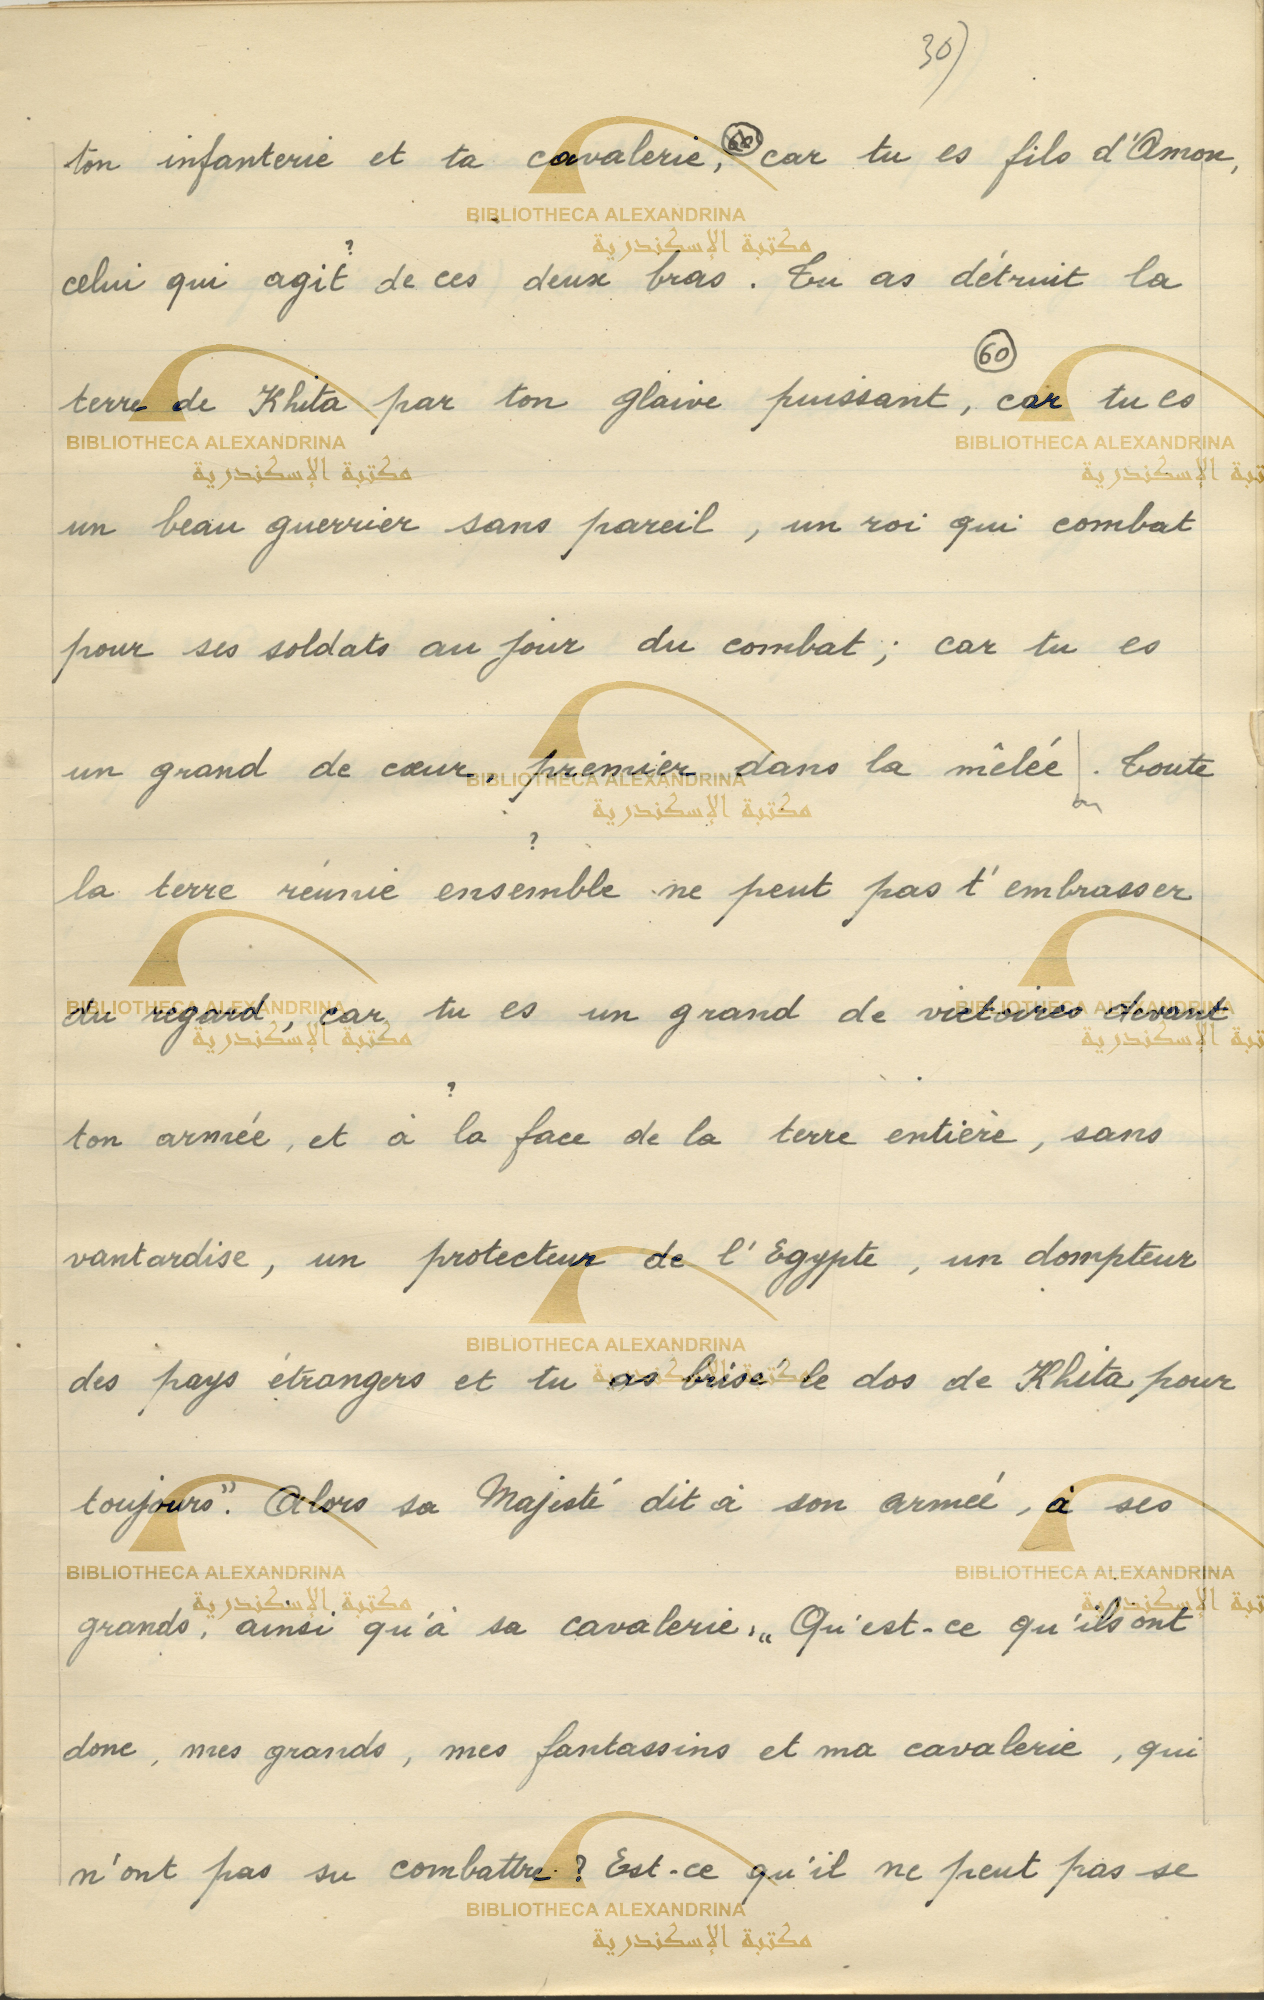 30)
ton infanterie et ta cavalerie, car tu es fils d'Amon,
BIBLIOTHECA ALEXANDRINA
مكتبة الإسكندرية
?
celui qui agit de ces deux bras. Tu as détruit la
60
terre de Khita par ton glaive puissant, car tu es
BIBLIOTHECA ALEXANDRINA BIBLIOTHECA ALEXANDRINA
مكتبة الإسكندرية
un beau guerrier sans pareil, un roi qui combat
pour ses soldats au jour du combat; car tu es
un grand de cœur, premier dans la mêlée. Toute
BIBLIOTHECA ALEXANDRINA
مكتبة الإسكندرية
?
la terre réunie ensemble ne peut pas t'embrasser
du regard, car tu es un grand de victoires devant
BIBLIOTHECA ALEXANDRINA BIBLIOTHECA ALEXANDRINA
مكتبة الإسكندرية
?
ton armée, et à la face de la terre entière, sans
vantardise, un protecteur de l'Egypte, un dompteur
BIBLIOTHECA ALEXANDRINA
مكتبة الإسكندرية
des pays étrangers et tu as brisé le dos de Khita pour
toujours". Alors sa Majesté dit à son armée, à ses
BIBLIOTHECA ALEXANDRINA BIBLIOTHECA ALEXANDRINA
مكتبة الإسكندرية
grands, ainsi qu'à sa cavalerie, „Qu'est-ce qu'ils ont
donc, mes grands, mes fantassins et ma cavalerie, qui
n'ont pas su combattre? Est-ce qu'il ne peut pas se
BIBLIOTHECA ALEXANDRINA
مكتبة الإسكندرية